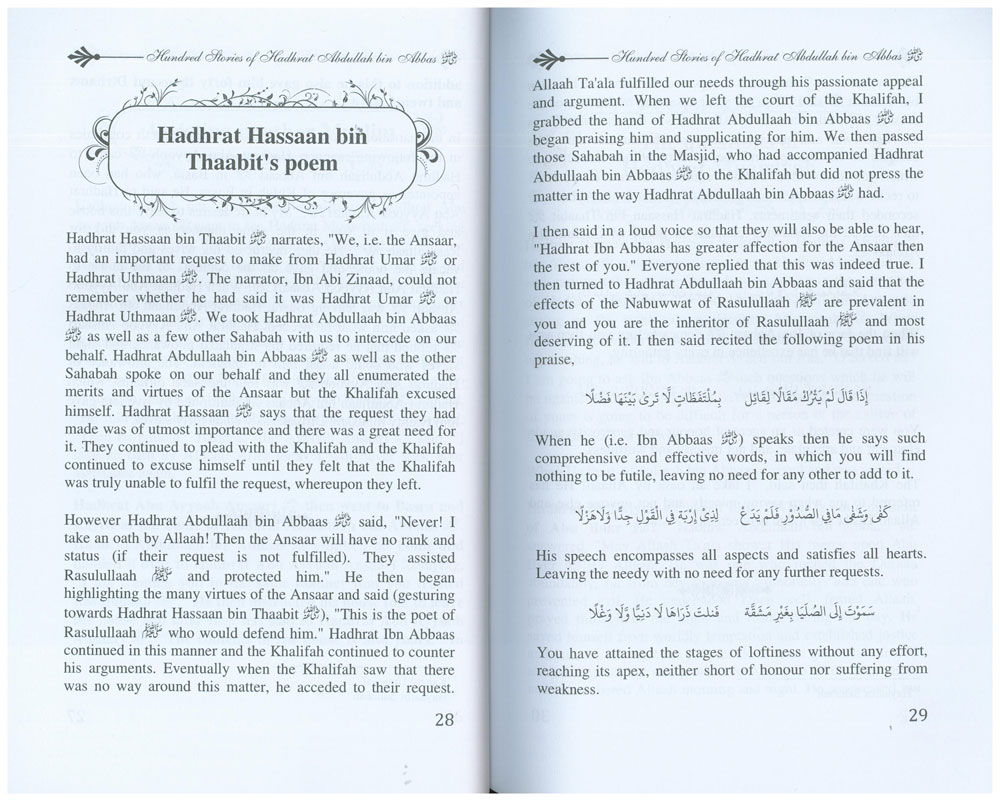 Hundred Stories of Hadhrat Abdullah bin Abbas ﷺ
Hadhrat Hassaan bin
Thaabit's poem
Hadhrat Hassaan bin Thaabit narrates, "We, i.e. the Ansaar,
had an important request to make from Hadhrat Umar or
Hadhrat Uthmaan. The narrator, Ibn Abi Zinaad, could not
remember whether he had said it was Hadhrat Umar or
Hadhrat Uthmaan. We took Hadhrat Abdullaah bin Abbaas
as well as a few other Sahabah with us to intercede on our
behalf. Hadhrat Abdullaah bin Abbaas as well as the other
Sahabah spoke on our behalf and they all enumerated the
merits and virtues of the Ansaar but the Khalifah excused
himself. Hadhrat Hassaan says that the request they had
made was of utmost importance and there was a great need for
it. They continued to plead with the Khalifah and the Khalifah
continued to excuse himself until they felt that the Khalifah
was truly unable to fulfil the request, whereupon they left.
However Hadhrat Abdullaah bin Abbaas said, "Never! I
take an oath by Allaah! Then the Ansaar will have no rank and
status (if their request is not fulfilled). They assisted
Rasulullaah ﷺ and protected him." He then began
highlighting the many virtues of the Ansaar and said (gesturing
towards Hadhrat Hassaan bin Thaabit), "This is the poet of
Rasulullaah ﷺ who would defend him." Hadhrat Ibn Abbaas
continued in this manner and the Khalifah continued to counter
his arguments. Eventually when the Khalifah saw that there
was no way around this matter, he acceded to their request.
28
Hundred Stories of Hadhrat Abdullah bin Abbas
Allaah Ta'ala fulfilled our needs through his passionate appeal
and argument. When we left the court of the Khalifah, I
grabbed the hand of Hadhrat Abdullaah bin Abbaas and
began praising him and supplicating for him. We then passed
those Sahabah in the Masjid, who had accompanied Hadhrat
Abdullaah bin Abbaas to the Khalifah but did not press the
matter in the way Hadhrat Abdullaah bin Abbaas had.
I then said in a loud voice so that they will also be able to hear,
"Hadhrat Ibn Abbaas has greater affection for the Ansaar then
the rest of you." Everyone replied that this was indeed true. I
then turned to Hadhrat Abdullaah bin Abbaas and said that the
effects of the Nabuwwat of Rasulullaah ﷺ are prevalent in
you and you are the inheritor of Rasulullaah ﷺ and most
deserving of it. I then said recited the following poem in his
praise,
إِذَا قَالَ لَمْ يَتْرُكْ مَقَالًا لِقَائِلٍ بِمُلْتَقَطَاتٍ لَّا تَرىٰ بَيْنَهَا فَضْلًا
When he (i.e. Ibn Abbaas) speaks then he says such
comprehensive and effective words, in which you will find
nothing to be futile, leaving no need for any other to add to it.
كَفٰى وَشَفٰى مَافِي الصُّدُوْرِ فَلَمْ يَدَعْ لِذِىْ إِرْبَةٍ فِي الْقَوْلِ جِدًّا وَلَاهَزْلًا
His speech encompasses all aspects and satisfies all hearts.
Leaving the needy with no need for any further requests.
سَمَوْتَ إِلَى الصُّلَيَا بِغَيْرِ مَشَقَّة فَنلتَ ذَرَاهَا لَا دَنِيًّا وَّلَا وَغْلًا
You have attained the stages of loftiness without any effort,
reaching its apex, neither short of honour nor suffering from
weakness.
29